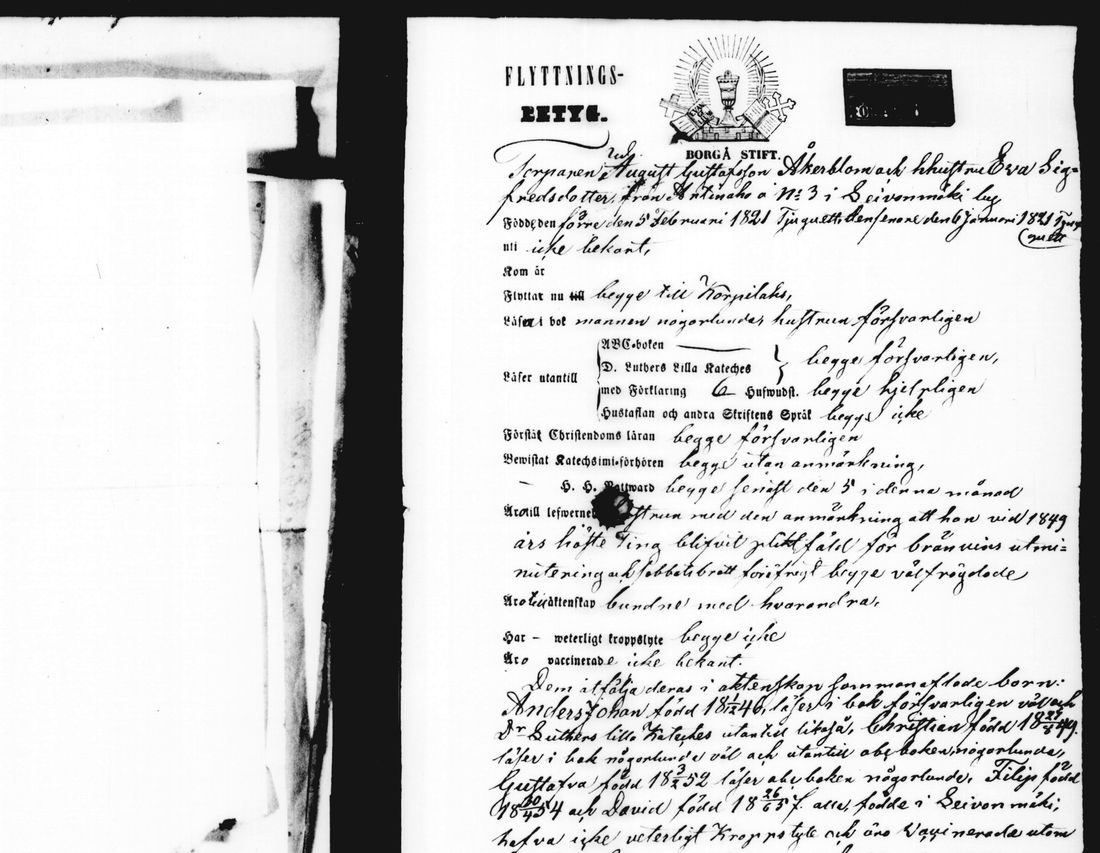 FLYTTNINGS-
BETYG.
BORGÅ STIFT.
Torparen August Gustafsson Åkerblom och hustru Eva Sig=
fredsdotter, från No 3 i Leivonmäki
Födde, den förre den 5 Februari 1821 den senare den 6 Januari 1821
uti icke bekant,
Kom år
Flyttar nu till begge till Korpilaks,
Läser i bok mannen någorlunda, hustrun försvarligen
Läser utantill
ABC-boken
D. Luthers Lilla Kateches begge försvarligen,
med Förklaring 6 Hufwudst. begge hjelpligen
Hustaflan och andra Skriftens Språk begge icke
Förstår Christendoms läran begge försvarligen
Bewistat Katechsimi-förhören begge utan anmärkning,
H. H. Nattward begge senast den 5 i denna månad
Äro till lefwernet hustrun med den anmärkning att hon vid 1849
års höste Ting blifvit pliktfäld för bränvins utmi=
nutering och sabbatsbrott föröfrigt begge välfrägdade
Äro till äktenskap bundne med hvarandra,
Har – weterligt kroppslyte begge icke
Äro vaccinerade icke bekant.
Dem åtfölja deras i äktenskap sammanaflade barn:
Anders Johan född 18 46, läser i bok försvarligen väl och
Dr Luthers lilla Kateches utantill likaså, Christian född 18 27/8 49.
läser i bok någorlunda väl och utantill abc boken någorlunda,
Gustafva född 18 3/2 52 läser abc boken någorlunda, Filip född
18 20/4 54 och David född 18 26/6 57. alla födde i Leivonmäki,
hafva icke veterligt Kroppslyte och äro Vaccinerade utom